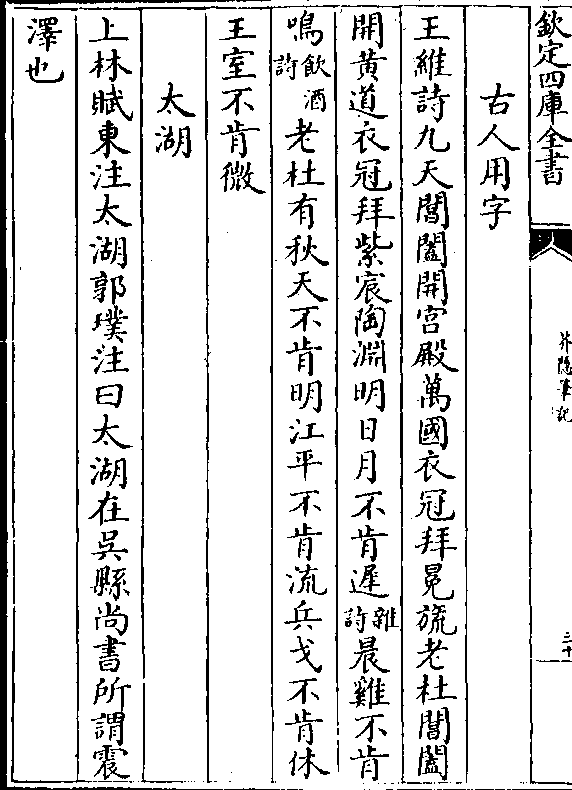 欽定四庫全書
芥隱筆記
三十
古人用字
王維詩九天閶闔開宮殿萬國衣冠拜冕旒老杜閶闔
開黄道衣冠拜紫宸陶淵明日月不肯遲雜詩晨雞不肯
鳴飲酒詩老杜有秋天不肯明江平不肯流兵戈不肯休
王室不肯微
太湖
上林賦東注太湖郭璞注曰太湖在吳縣尚書所謂震
澤也